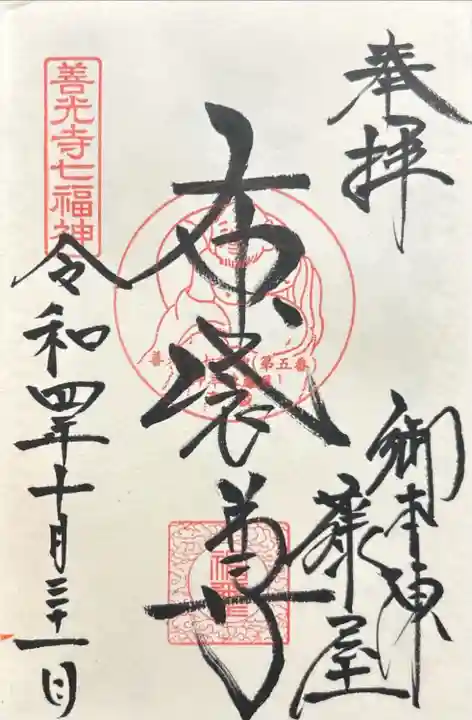 奉拝
御本陳
藤屋
布袋尊
善光寺七福神
第五番
令和四年十月三十一日